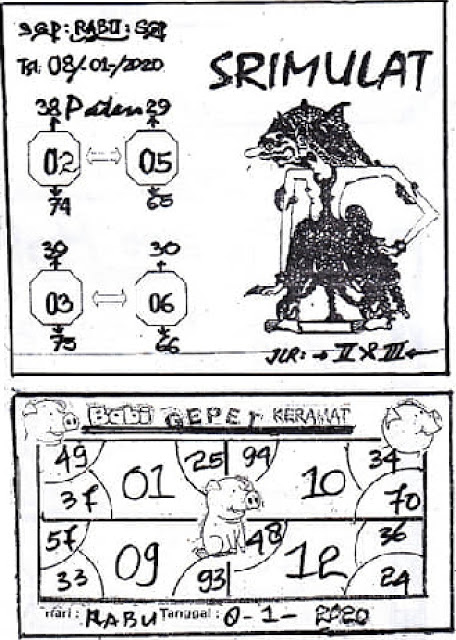 SGP: RABU: SGP
Tgl. 08/-01-/2020
SRIMULAT
38 Paten 29
02 05
74 65
39 30
03 06
75 66
JLR: → II & III ←
Babi GEPEY KERAMAT
49 25 99 34
37 01 10 70
57 09 48 12 36
33 93 24
Hari: RABU Tanggal: 0-1- 2020